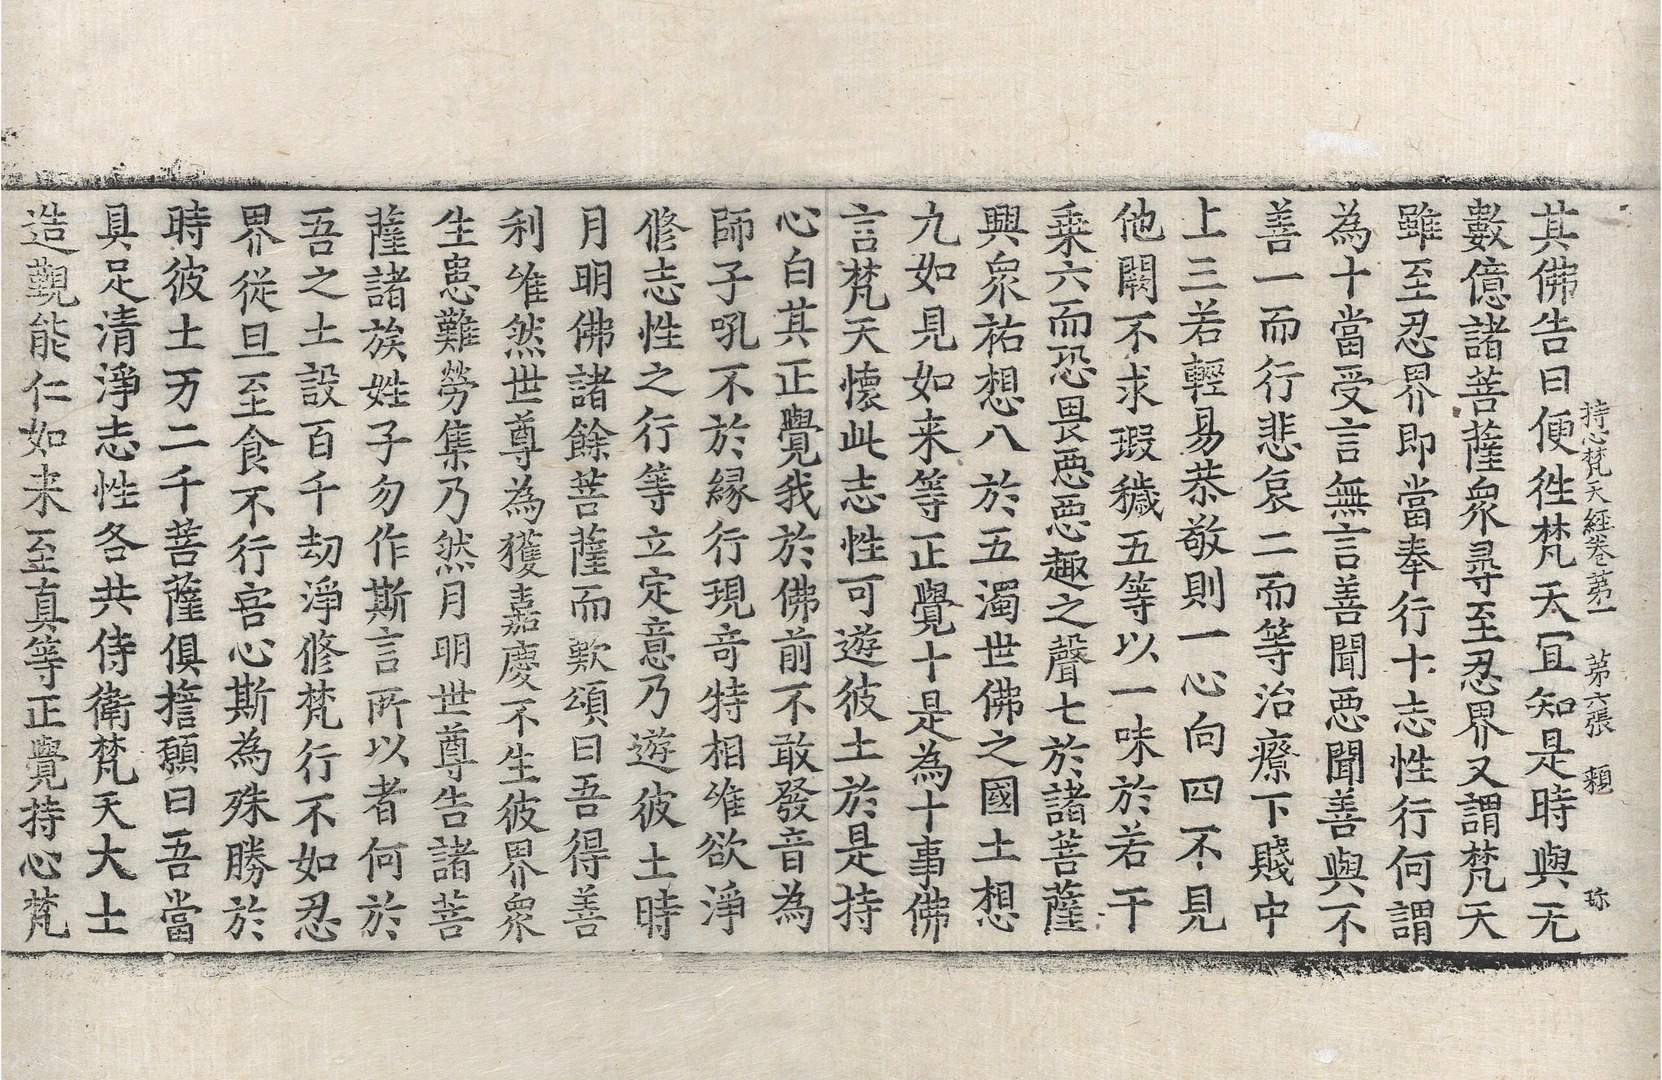 持心梵天經卷苐一　苐六張　賴　珎
其佛告曰便徃梵天冝知是時與无
數億諸菩薩衆尋至忍界又謂梵天
雖至忍界即當奉行十志性行何謂
為十當受言無言善聞悪聞善與不
善一而行悲哀二而等治療下賤中
上三若輕易恭敬則一心向四不見
他闕不求瑕穢五等以一味於若干
乗六而恐畏悪悪趣之聲七於諸菩薩
興衆祐想八於五濁世佛之國土想
九如見如来等正覺十是為十事佛
言梵天懷此志性可遊彼土於是持
心白其正覺我於佛前不敢發音為
師子吼不於縁行現奇特相唯欲淨
修志性之行等立定意乃遊彼土時
月明佛諸餘菩薩而歎頌曰吾得善
利唯然世尊為獲嘉慶不生彼界衆
生患難勞集乃然月明世尊告諸菩
薩諸族姓子勿作斯言所以者何於
吾之土設百千劫淨修梵行不如忍
界從旦至食不行害心斯為殊勝於
時彼土万二千菩薩俱擔願曰吾當
具足清淨志性各共侍衛梵天大士
造觀能仁如来至真等正覺持心梵